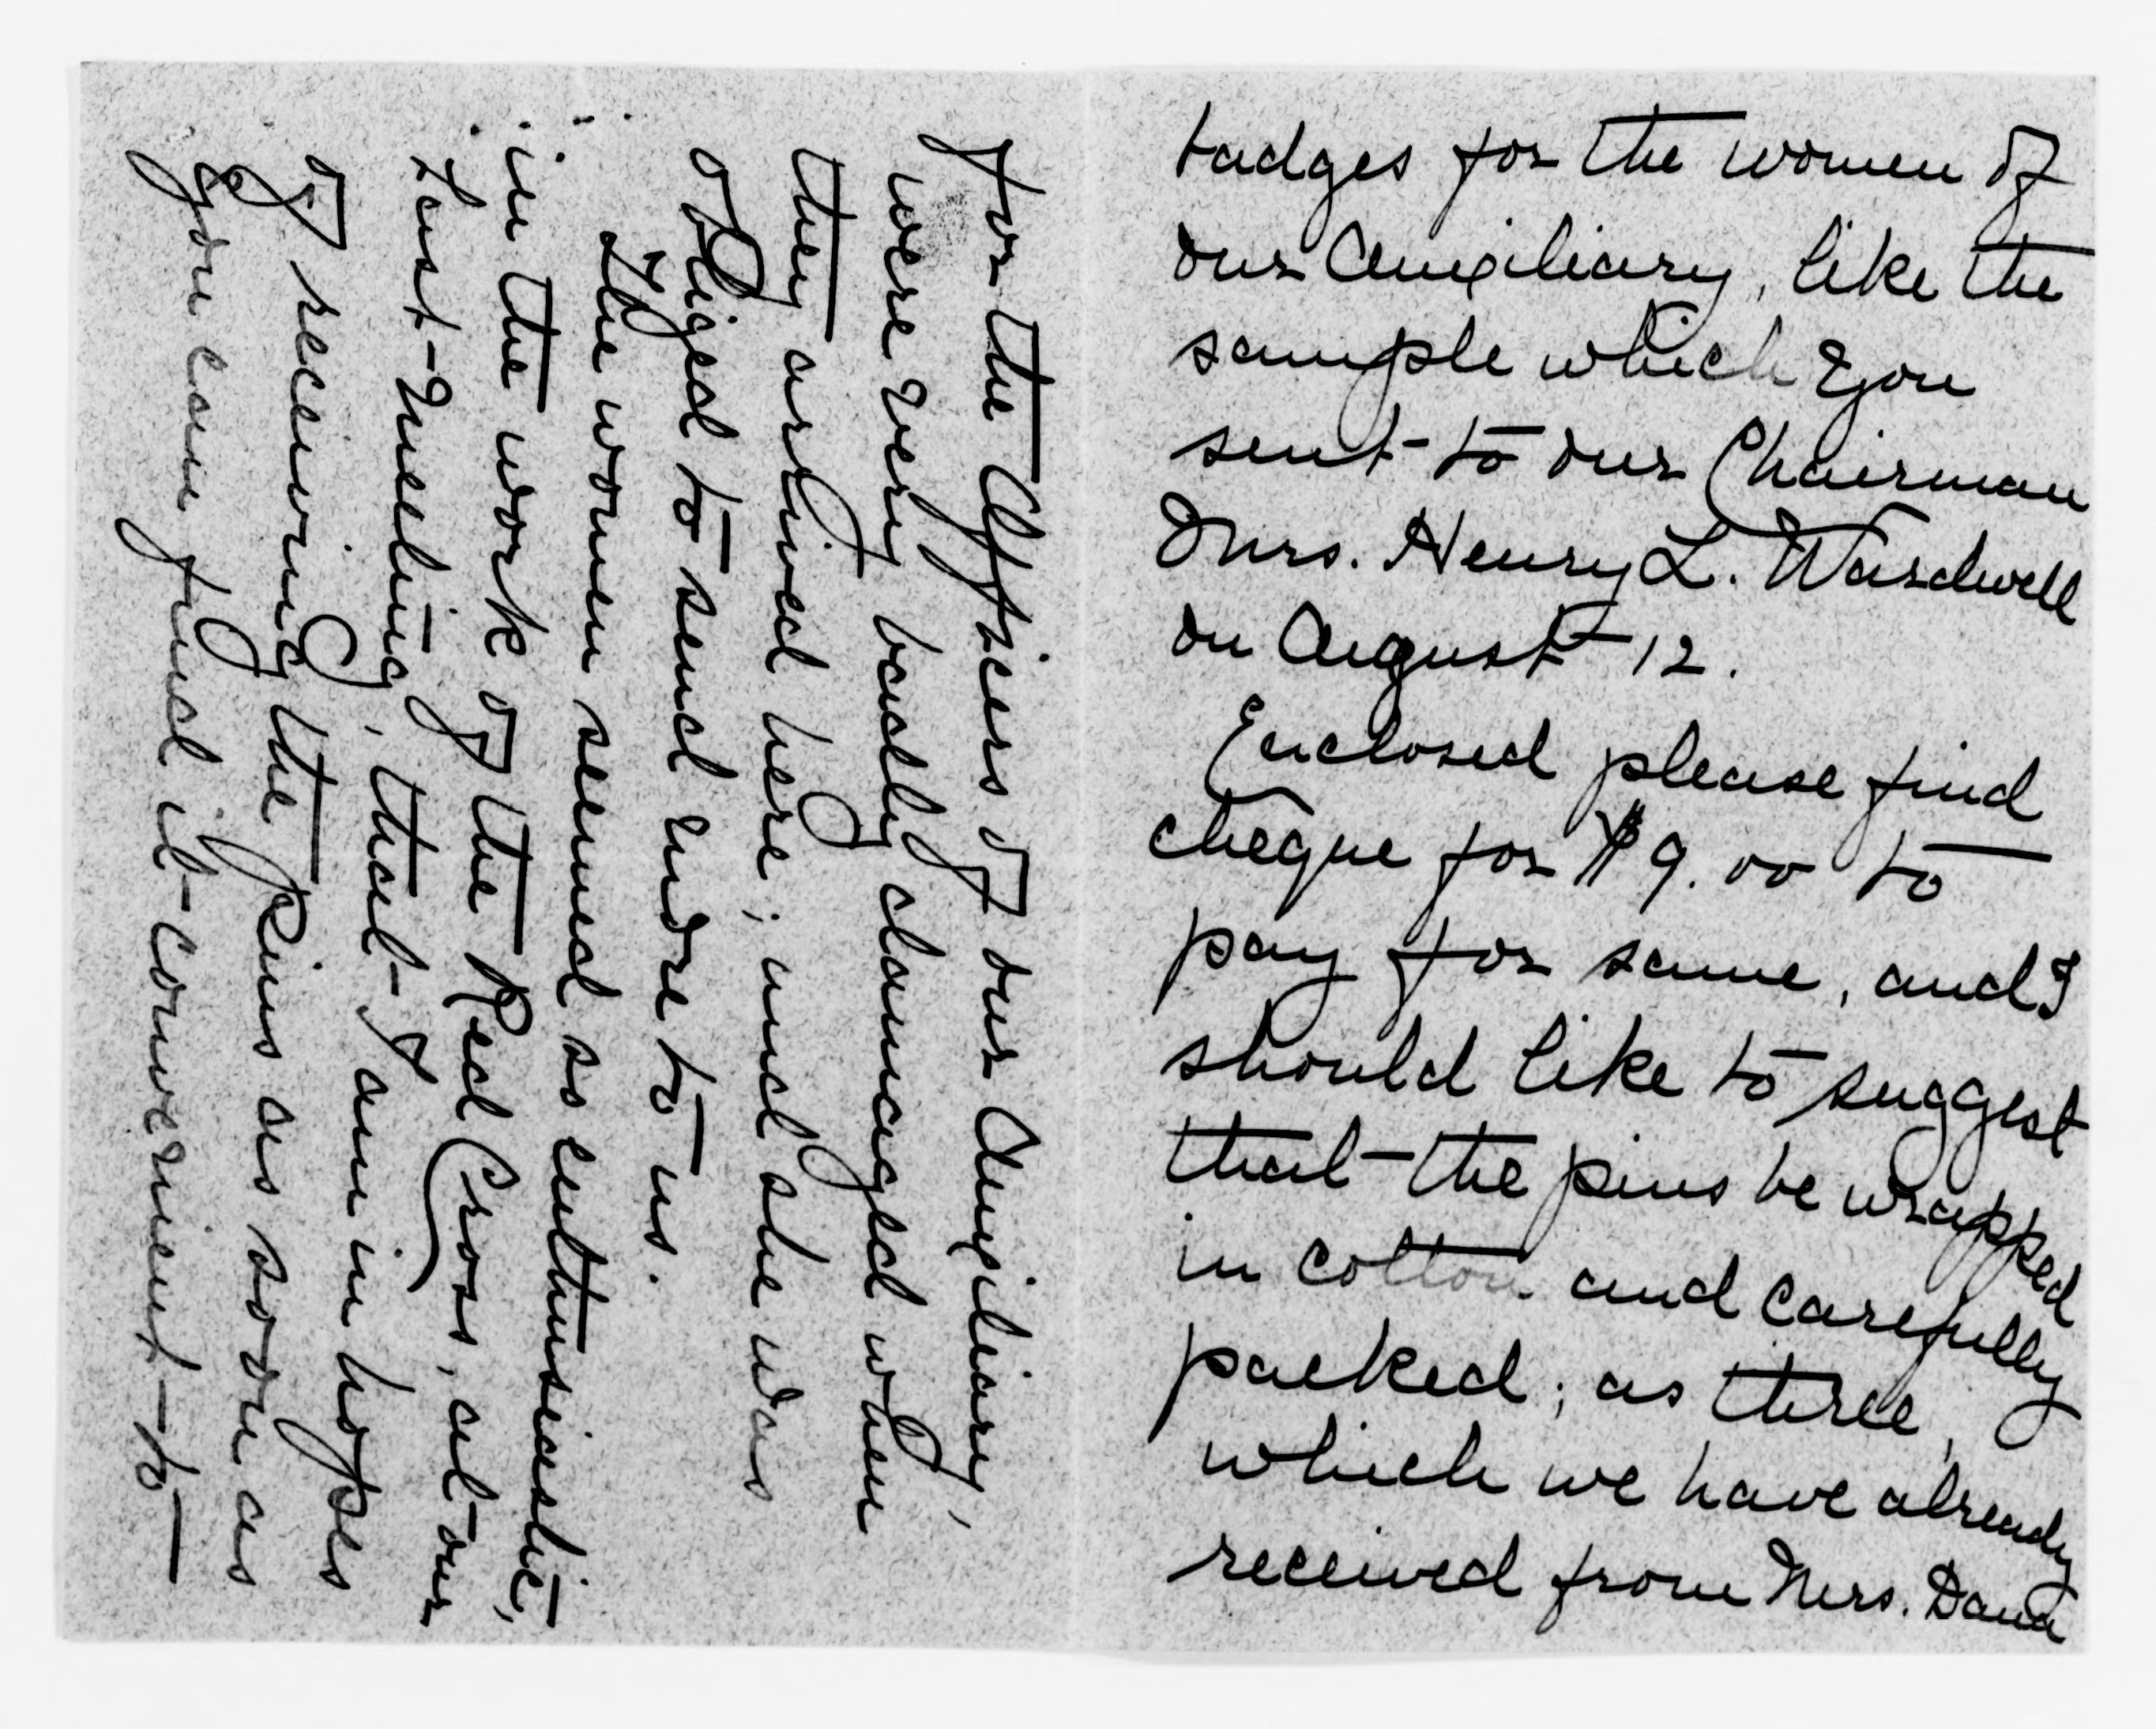 badges for the women of
our Auxiliary, like the
sample which you
sent to our Chairman
Mrs. Henry L. Wardwell
on August 12.
Enclosed please find
cheque for $9.00 to
pay for same, and I
should like to suggest
that the pins be wrapped
in cotton and carefully
packed; as three,
which we have already
received from Mrs. Dana
for the Officers of our Auxiliary,
were very badly damaged when
they arrived here; and she was
obliged to send more to us.
The women seemed so enthusiastic,
in the work of the Red Cross, at our
last meeting, that I am in hopes
of receiving the pins as soon as
you can find it convenient to